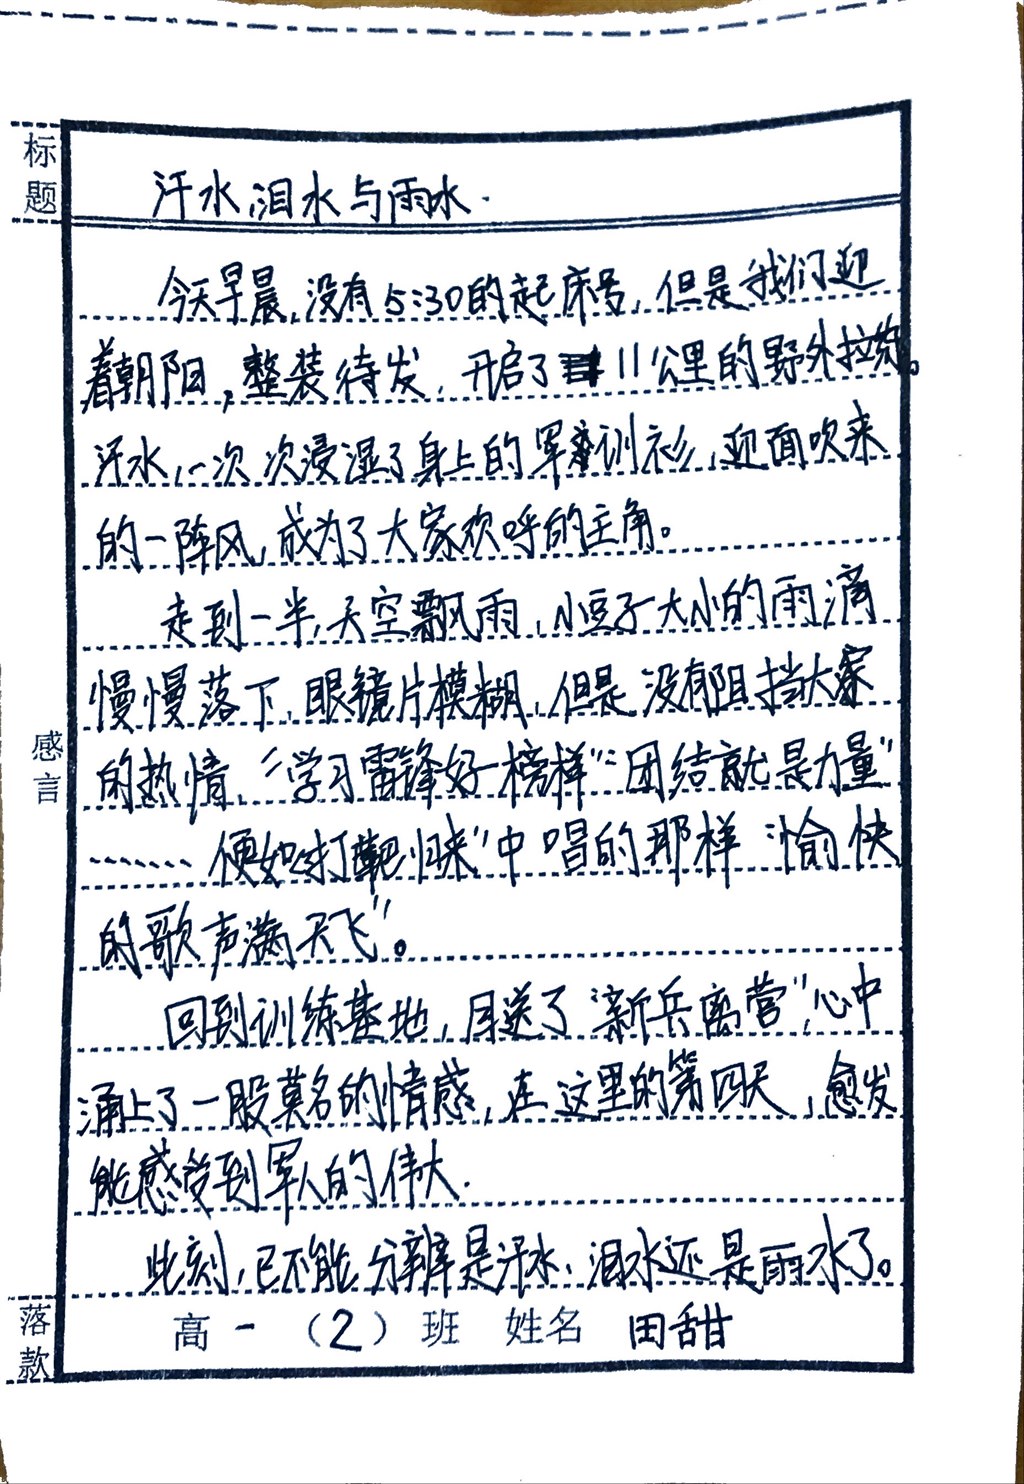 标题
汗水,泪水与雨水.
今天早晨,没有5:30的起床号,但是我们迎
着朝阳,整装待发,开启了11公里的野外拉练。
汗水,一次次浸湿了身上的军训衫,迎面吹来
的一阵风,成为了大家欢呼的主角。
走到一半,天空飘雨,小豆子大小的雨滴
慢慢落下,眼镜片模糊,但是没有阻挡大家
的热情,“学习雷锋好榜样”“团结就是力量”
……便如“打靶归来”中唱的那样“愉快
的歌声满天飞”。
感言
回到训练基地,目送了“新兵离营”,心中
涌上了一股莫名的情感,在这里的第四天,愈发
能感受到军人的伟大.
此刻,已不能分辨是汗水,泪水还是雨水了。
落款
高一(2)班 姓名 田甜